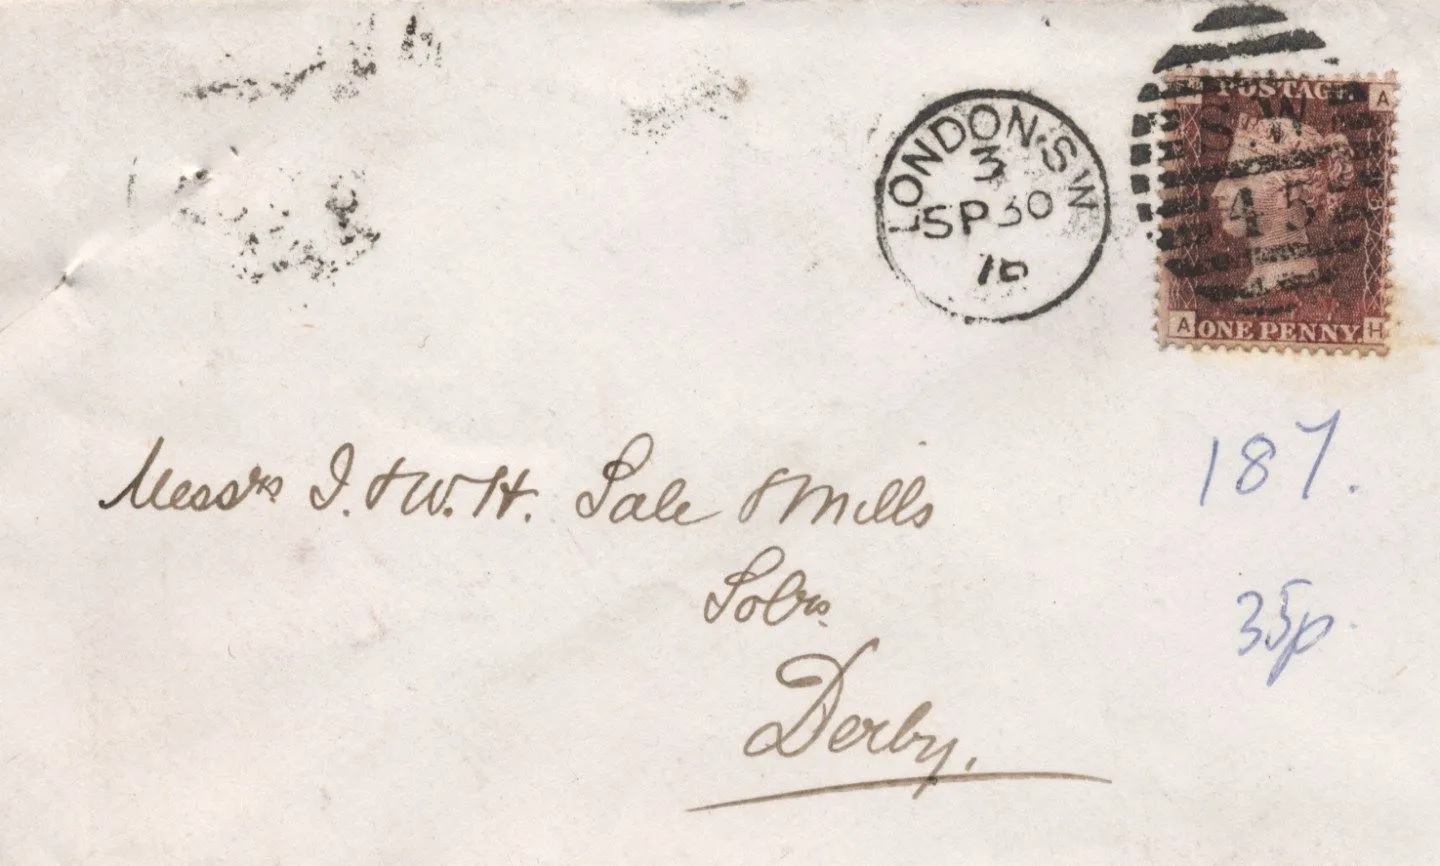 LONDON·S.W
3
SP 30
76
POSTAGE
A
S.W
45
A ONE PENNY. H
187.
Messrs J. & W. H. Sale & Mills
Solrs
35p
Derby.